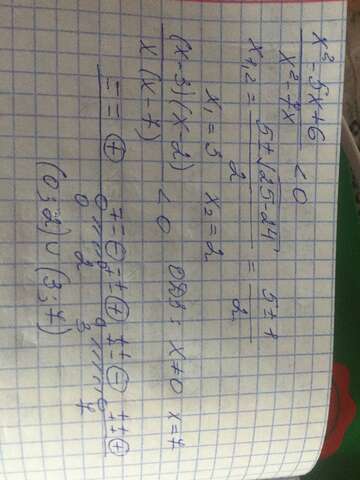 x² - 5x + 6 / x² - 7x < 0
x₁,₂ = 5 ± √25 - 24 / 2 = 5 ± 1 / 2
x₁ = 3 x₂ = 2
(x - 3)(x - 2) / x (x - 7) < 0 ОДЗ: x ≠ 0 x = 7
0 2 3 7
(0; 2) ∪ (3; 7)